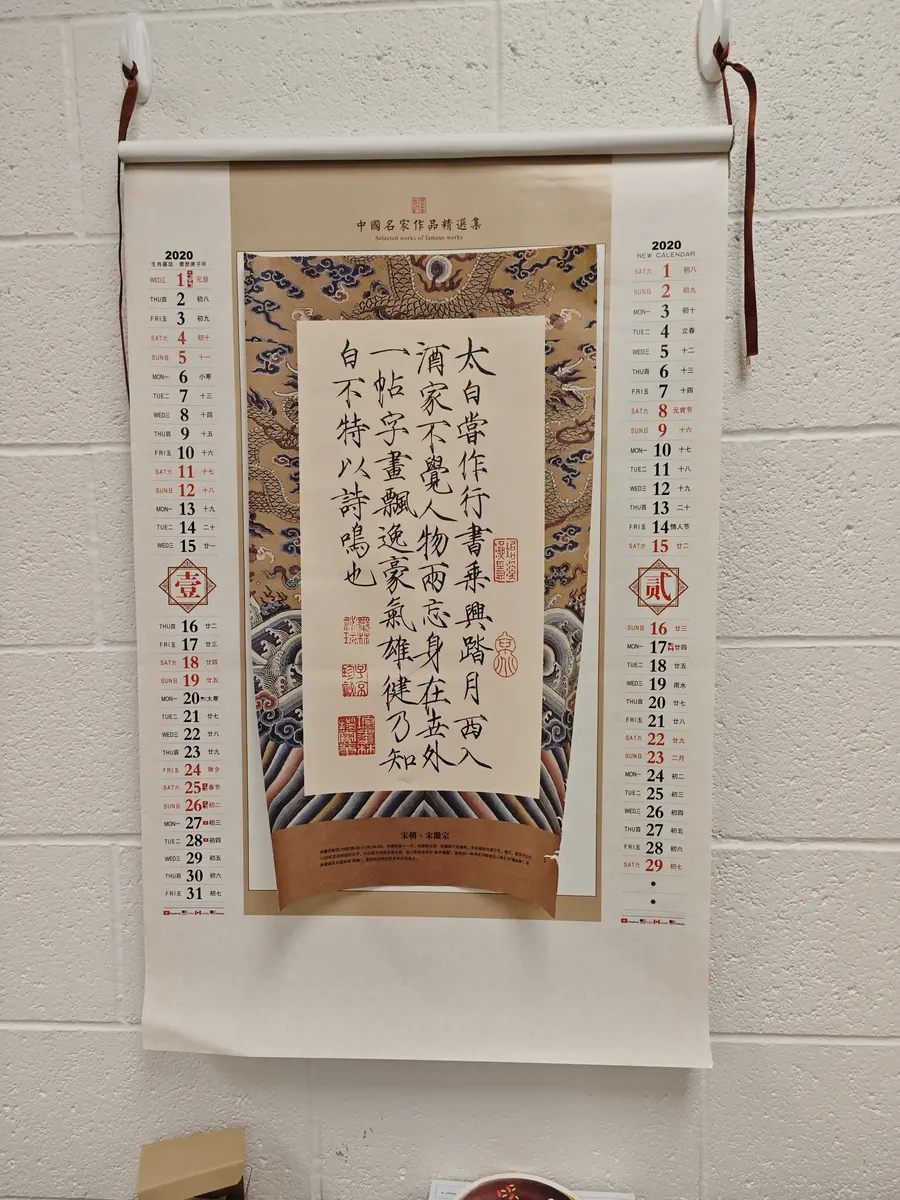 中國名家作品精選集
Selected works of famous works
2020
WED三 1 元旦
THU四 2 初八
FRI五 3 初九
SAT六 4 初十
SUN日 5 十一
MON一 6 小寒
TUE二 7 十三
WED三 8 十四
THU四 9 十五
FRI五 10 十六
SAT六 11 十七
SUN日 12 十八
MON一 13 十九
TUE二 14 二十
WED三 15 廿一
壹
THU四 16 廿二
FRI五 17 廿三
SAT六 18 廿四
SUN日 19 廿五
MON一 20 大寒
TUE二 21 廿七
WED三 22 廿八
THU四 23 廿九
FRI五 24 除夕
SAT六 25 春节
SUN日 26 初二
MON一 27 初三
TUE二 28 初四
WED三 29 初五
THU四 30 初六
FRI五 31 初七
太白嘗作行書乘興踏月西入
酒家不覺人物兩忘身在世外
一帖字畫飄逸豪氣雄健乃知
白不特以詩鳴也
宋朝·宋徽宗
2020
NEW CALENDAR
SAT六 1 初八
SUN日 2 初九
MON一 3 初十
TUE二 4 立春
WED三 5 十二
THU四 6 十三
FRI五 7 十四
SAT六 8 元宵节
SUN日 9 十六
MON一 10 十七
TUE二 11 十八
WED三 12 十九
THU四 13 二十
FRI五 14 情人节
SAT六 15 廿二
贰
SUN日 16 廿三
MON一 17 廿四
TUE二 18 廿五
WED三 19 雨水
THU四 20 廿七
FRI五 21 廿八
SAT六 22 廿九
SUN日 23 二月
MON一 24 初二
TUE二 25 初三
WED三 26 初四
THU四 27 初五
FRI五 28 初六
SAT六 29 初七